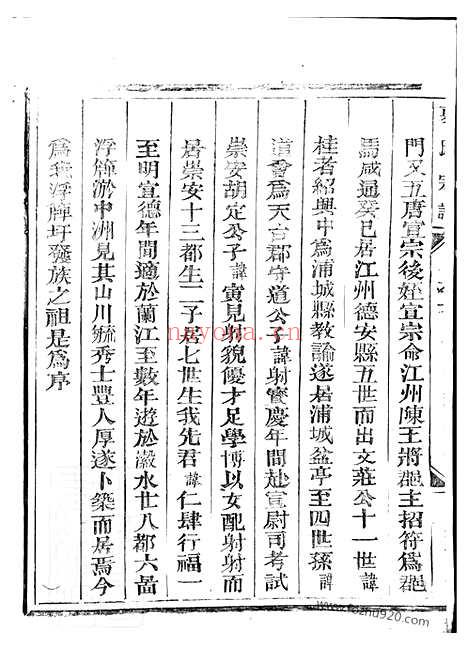 氏宗譜
門又五唐宣宗後姪宣宗命江州陳王將郡主招符為郡
馬咸通癸巳居江州德安縣五世而出文莊公十一世諱
桂者紹興中為浦城縣教諭遂居浦城盆亭至四世孫諱
會為天官郡守道公子諱射寳慶年間赴宣尉司考試
崇安胡定公子諱寅見射貌優才足學博以女配射射而
居崇安十三都生二子居七世生我先君諱仁肆行福一
至明宣德年間適於蘭江至數年遊於瀫水廿八都六啚
浮牌淤中洲見其山川毓秀士豐人厚遂卜築而居焉今
為我浮牌圩發族之祖是為序
nayona.cn
www.fozhu920.com